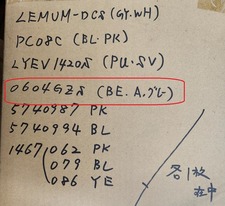 LEMUM-DCS (GY.WH)
PC08C (BL.PK)
LYEV1420S (PU.SV)
0604GZS (BE.A.グレー)
5740987 PK
5740994 BL
1467/062 PK
079 BL
086 YE
各1枚
在中